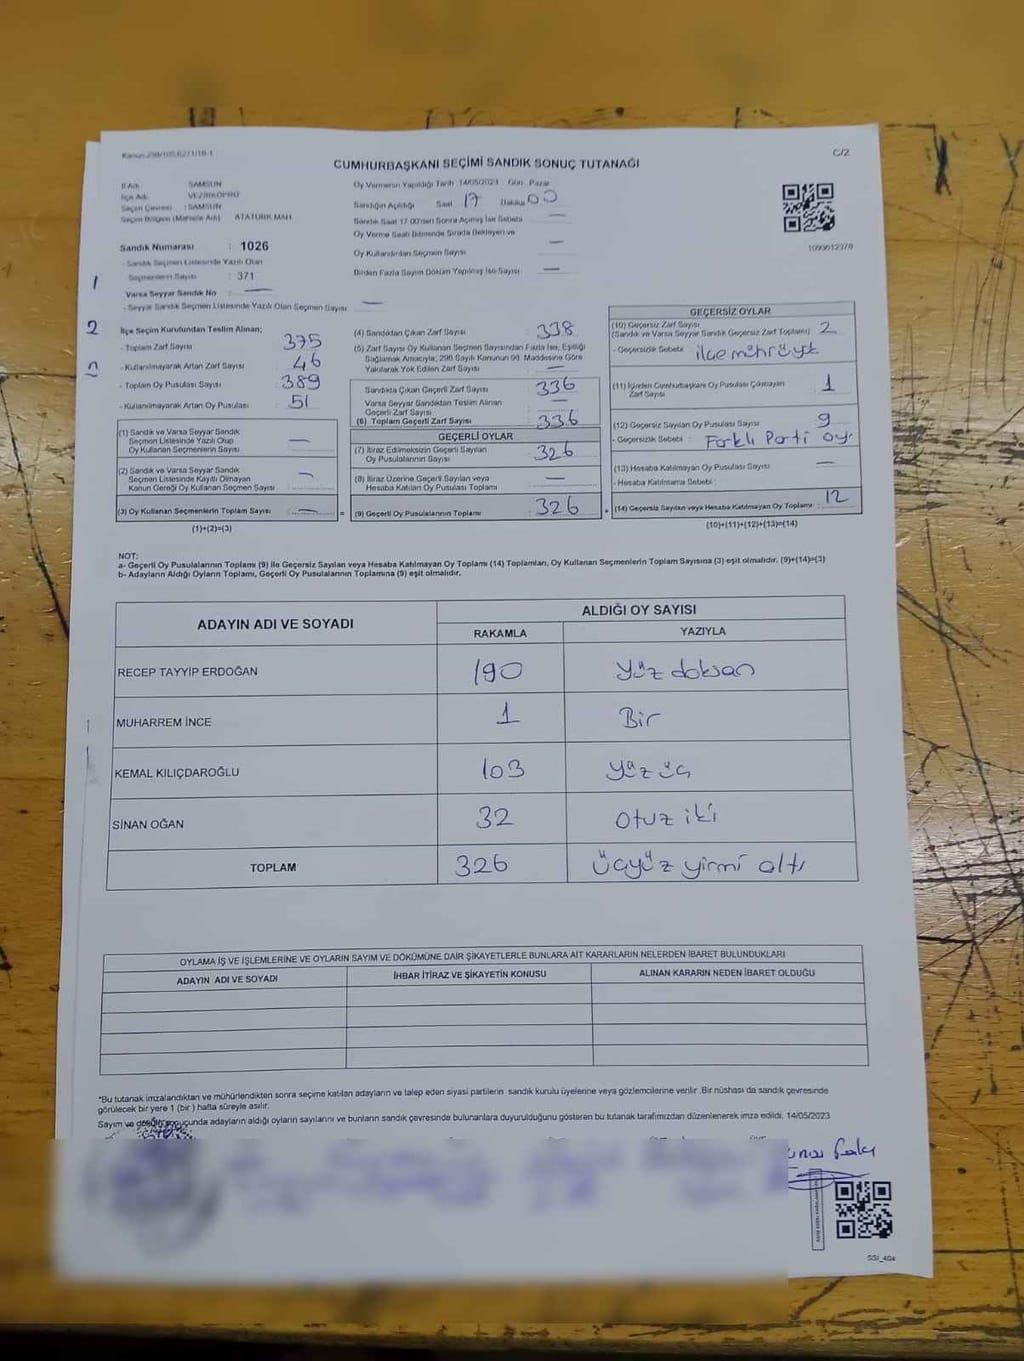 Kanun:298/105,6271/18-1
C/2
CUMHURBAŞKANI SEÇİMİ SANDIK SONUÇ TUTANAĞI
İl Adı : SAMSUN
İlçe Adı : VEZİRKÖPRÜ
Seçim Çevresi : SAMSUN
Seçim Bölgesi (Mahalle Adı) ATATÜRK MAH.
Sandık Numarası : 1026
- Sandık Seçmen Listesinde Yazılı Olan
Seçmenlerin Sayısı : 371
Varsa Seyyar Sandık No : —
- Seyyar Sandık Seçmen Listesinde Yazılı Olan Seçmen Sayısı —
Oy Vermenin Yapıldığı Tarih 14/05/2023 Gün Pazar
Sandığın Açıldığı Saat 17 Dakika 00
Sandık Saat 17.00'den Sonra Açılmış İse Sebebi —
Oy Verme Saati Bitiminde Sırada Bekleyen ve
Oy Kullandırılan Seçmen Sayısı —
Birden Fazla Sayım Döküm Yapılmış İse Sayısı —
1099612378
1
2
2
İlçe Seçim Kurulundan Teslim Alınan;
- Toplam Zarf Sayısı : 375
- Kullanılmayarak Artan Zarf Sayısı : 46
- Toplam Oy Pusulası Sayısı : 389
- Kullanılmayarak Artan Oy Pusulası : 51
(1) Sandık ve Varsa Seyyar Sandık
Seçmen Listesinde Yazılı Olup
Oy Kullanan Seçmenlerin Sayısı : —
(2) Sandık ve Varsa Seyyar Sandık
Seçmen Listesinde Kayıtlı Olmayan
Kanun Gereği Oy Kullanan Seçmen Sayısı : —
(3) Oy Kullanan Seçmenlerin Toplam Sayısı : —
(1)+(2)=(3)
(4) Sandıktan Çıkan Zarf Sayısı : 338
(5) Zarf Sayısı Oy Kullanan Seçmen Sayısından Fazla İse, Eşitliği
Sağlamak Amacıyla; 298 Sayılı Kanunun 98. Maddesine Göre
Yakılarak Yok Edilen Zarf Sayısı : —
Sandıkta Çıkan Geçerli Zarf Sayısı : 336
Varsa Seyyar Sandıktan Teslim Alınan
Geçerli Zarf Sayısı : —
(6) Toplam Geçerli Zarf Sayısı : 336
GEÇERLİ OYLAR
(7) İtiraz Edilmeksizin Geçerli Sayılan
Oy Pusulalarının Sayısı : 326
(8) İtiraz Üzerine Geçerli Sayılan veya
Hesaba Katılan Oy Pusulası Toplamı : —
(9) Geçerli Oy Pusulalarının Toplamı : 326
=
+
GEÇERSİZ OYLAR
(10) Geçersiz Zarf Sayısı
(Sandık ve Varsa Seyyar Sandık Geçersiz Zarf Toplamı) : 2
- Geçersizlik Sebebi : ilçe mührü yok
(11) İçinden Cumhurbaşkanı Oy Pusulası Çıkmayan
Zarf Sayısı : 1
(12) Geçersiz Sayılan Oy Pusulası Sayısı : 9
- Geçersizlik Sebebi : Farklı Parti oy.
(13) Hesaba Katılmayan Oy Pusulası Sayısı : —
- Hesaba Katılmama Sebebi :
(14) Geçersiz Sayılan veya Hesaba Katılmayan Oy Toplamı : 12
(10)+(11)+(12)+(13)=(14)
NOT:
a- Geçerli Oy Pusulalarının Toplamı (9) ile Geçersiz Sayılan veya Hesaba Katılmayan Oy Toplamı (14) Toplamları, Oy Kullanan Seçmenlerin Toplam Sayısına (3) eşit olmalıdır. (9)+(14)=(3)
b- Adayların Aldığı Oyların Toplamı, Geçerli Oy Pusulalarının Toplamına (9) eşit olmalıdır.
ADAYIN ADI VE SOYADI
ALDIĞI OY SAYISI
RAKAMLA YAZIYLA
RECEP TAYYİP ERDOĞAN 190 yüz doksan
MUHARREM İNCE 1 Bir
KEMAL KILIÇDAROĞLU 103 yüz üç
SİNAN OĞAN 32 otuz iki
TOPLAM 326 üçyüz yirmi altı
OYLAMA İŞ VE İŞLEMLERİNE VE OYLARIN SAYIM VE DÖKÜMÜNE DAİR ŞİKAYETLERLE BUNLARA AİT KARARLARIN NELERDEN İBARET BULUNDUKLARI
ADAYIN ADI VE SOYADI İHBAR İTİRAZ VE ŞİKAYETİN KONUSU ALINAN KARARIN NEDEN İBARET OLDUĞU
*Bu tutanak imzalandıktan ve mühürlendikten sonra seçime katılan adayların ve talep eden siyasi partilerin sandık kurulu üyelerine veya gözlemcilerine verilir .Bir nüshası da sandık çevresinde
görülecek bir yere 1 (bir ) hafta süreyle asılır.
Sayım ve döküm sonucunda adayların aldığı oyların sayılarını ve bunların sandık çevresinde bulunanlara duyurulduğunu gösteren bu tutanak tarafımızdan düzenlenerek imza edildi. 14/05/2023
SSI_404